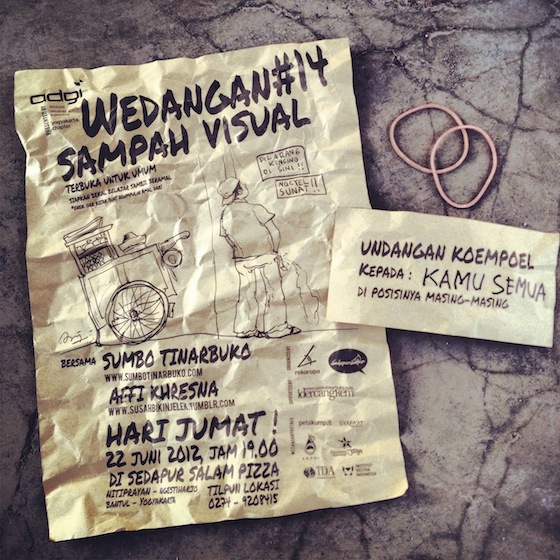 adgi
yogyakarta
chapter
WEDANGAN#14
SAMPAH VISUAL
TERBUKA UNTUK UMUM
SIAPKAN BEKAL BELAJAR SAMBIL BERAMAL
DILARANG
KENCING
DI SINI !!
NGEYEL!!
SUNAT!
BERSAMA SUMBO TINARBUKO
WWW.SUMBOTINARBUKO.COM
ALFI KHRESNA
WWW.SUSAHBIKINJELEK.TUMBLR.COM
HARI JUMAT !
22 JUNI 2012, JAM 19.00
DI SEDAPUR SALAM PIZZA
NITIPRAYAN - NGESTIHARJO
BANTUL - YOGYAKARTA
TILPUN LOKASI
0274 - 9208415
rekarupa
idercangkem
petakumpet
SYAFAAT
TDA
UNDANGAN KOEMPOEL
KEPADA : KAMU SEMUA
DI POSISINYA MASING-MASING